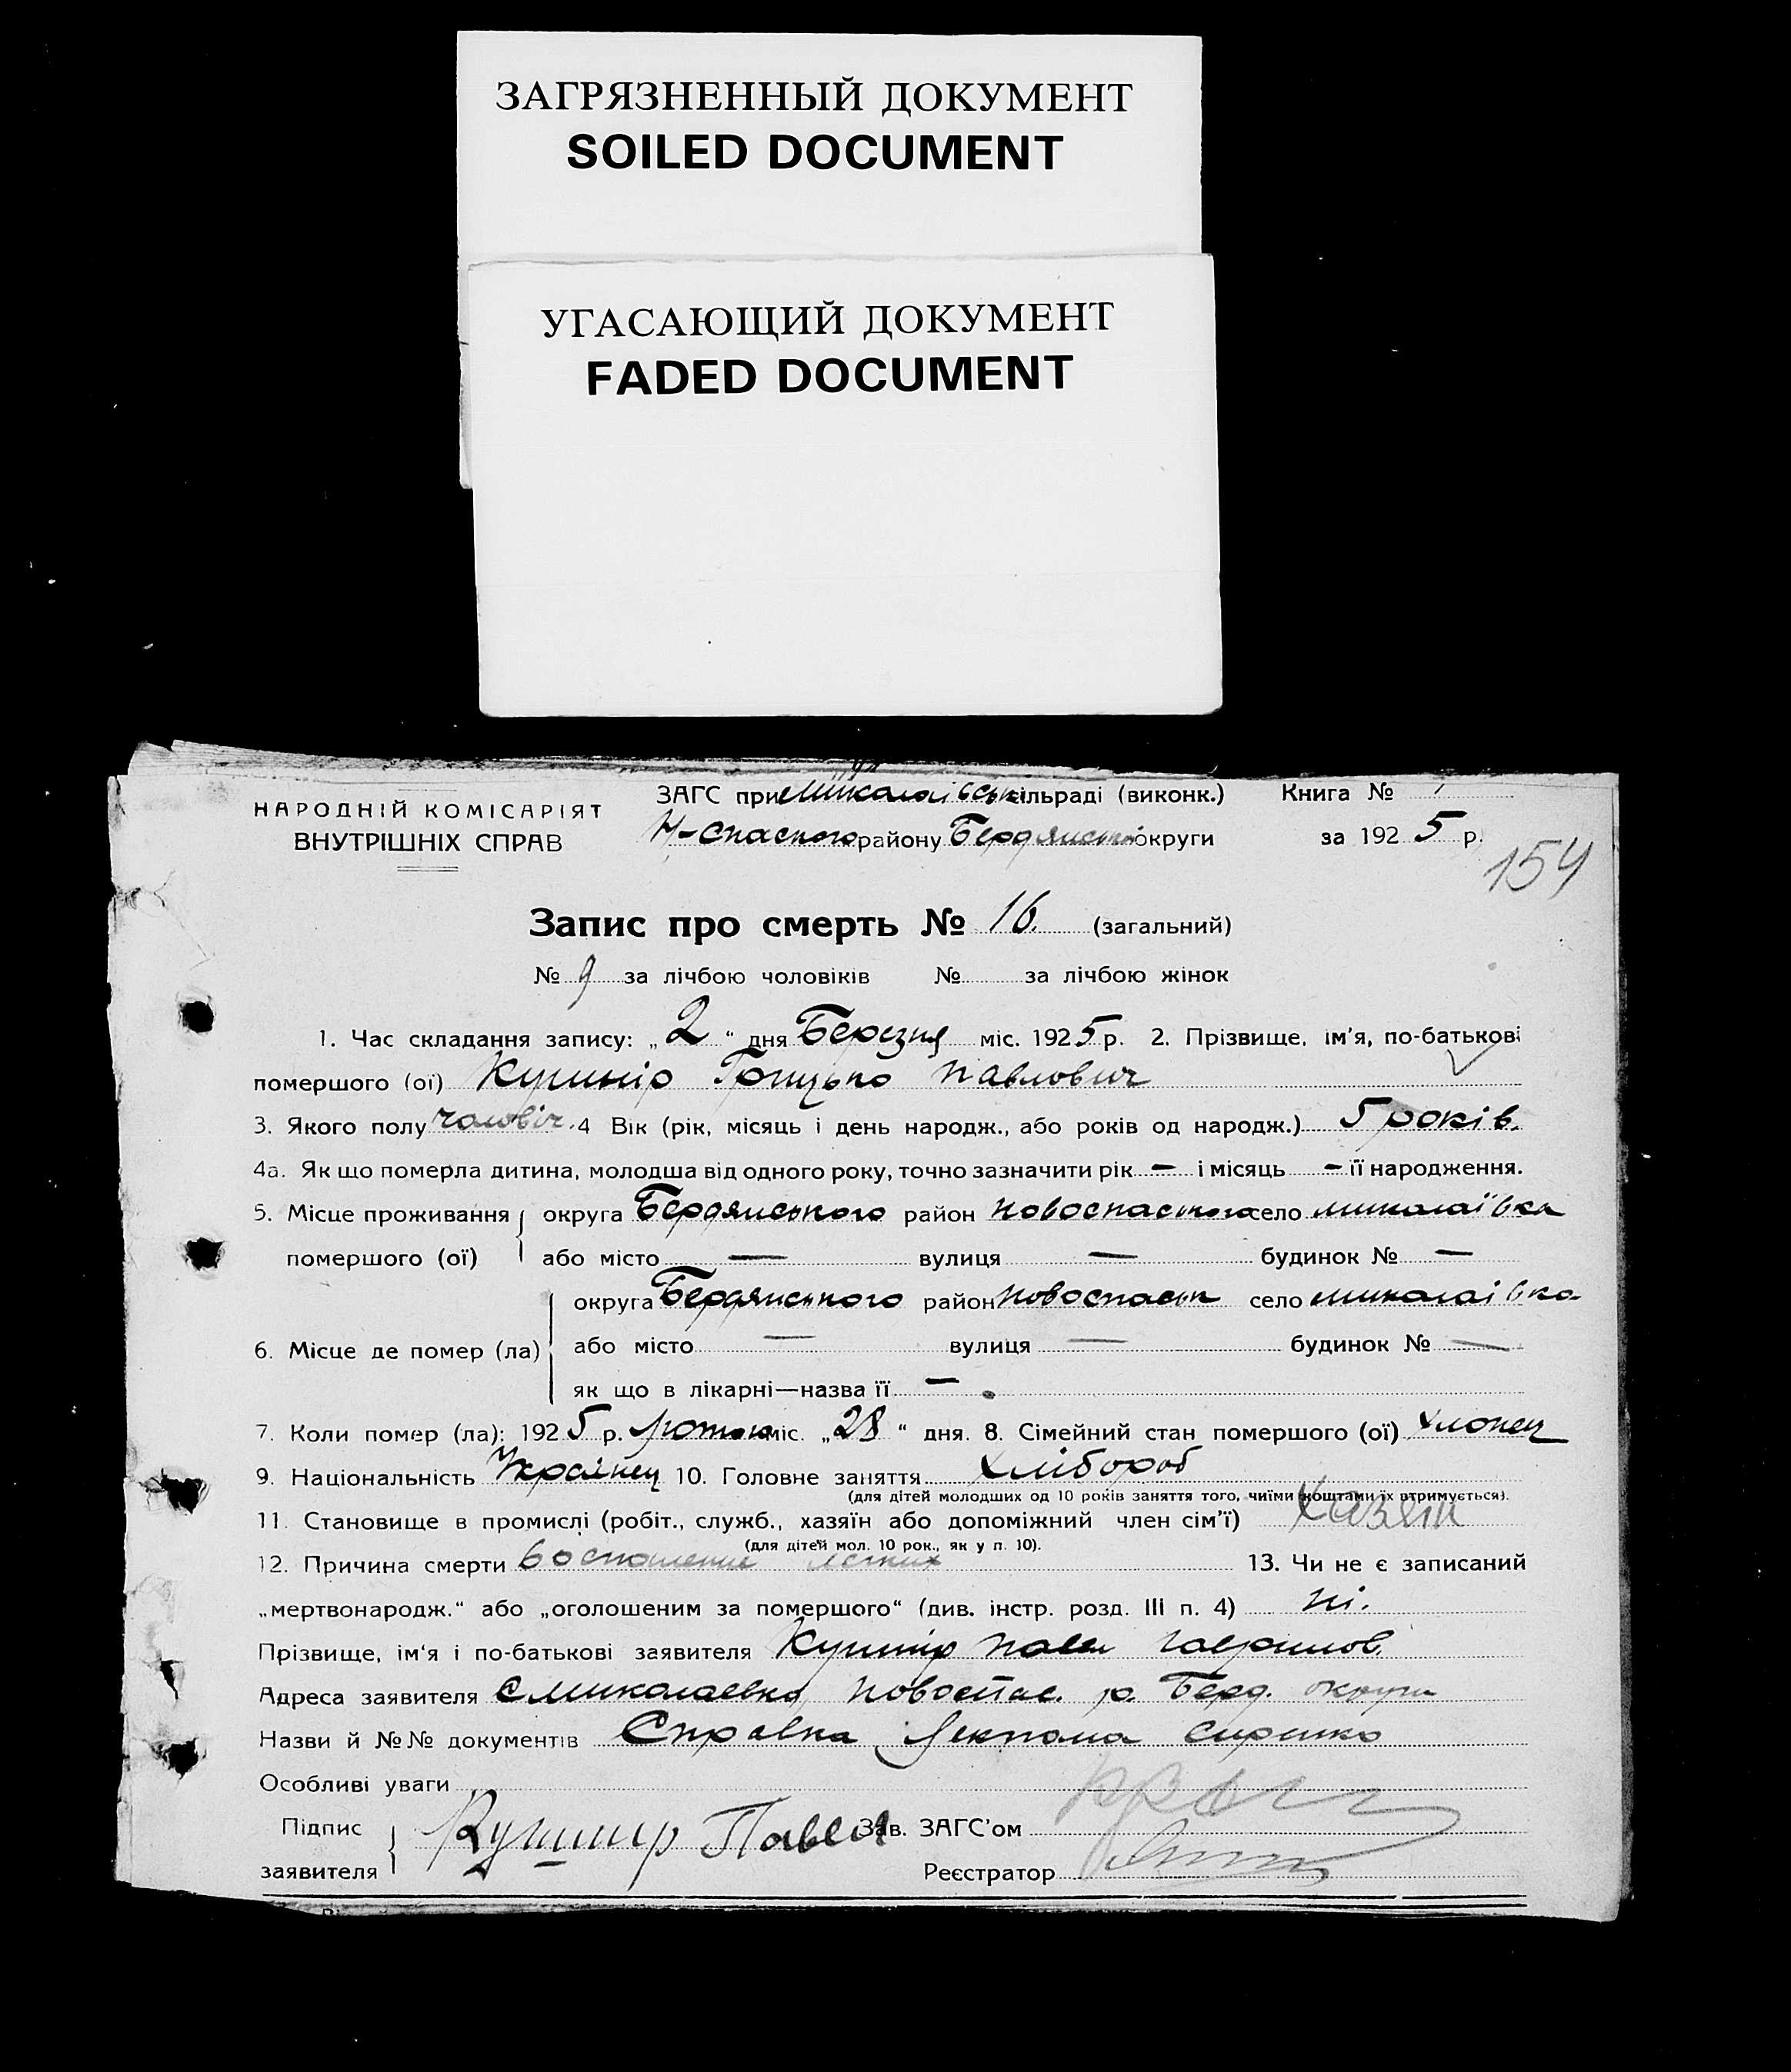 ЗАГРЯЗНЕННЫЙ ДОКУМЕНТ
SOILED DOCUMENT
УГАСАЮЩИЙ ДОКУМЕНТ
FADED DOCUMENT
НАРОДНІЙ КОМІСАРІЯТ
ВНУТРІШНІХ СПРАВ
ЗАГС при Миколаївськ сільраді (виконк.)
Н-Спаського району Бердянської округи
Книга №
за 1925 р.
154
Запис про смерть № 16. (загальний)
№ 9 за лічбою чоловіків № за лічбою жінок
1. Час складання запису: „2“ дня Березня міс. 1925 р. 2. Прізвище, ім'я, по-батькові
помершого (ої) Кушнір Грицько Павлович
3. Якого полу чоловіч. 4 Вік (рік, місяць і день народж., або років од народж.) 5 років.
4а. Як що померла дитина, молодша від одного року, точно зазначити рік — і місяць — її народження.
5. Місце проживання округа Бердянського район Новоспаського село Миколаївка
помершого (ої) або місто — вулиця — будинок № —
округа Бердянського район Новоспаськ село Миколаївка
6. Місце де помер (ла) або місто — вулиця — будинок № —
як що в лікарні—назва її —
7. Коли помер (ла): 1925 р. лютого міс. „28“ дня. 8. Сімейний стан помершого (ої) хлопец
9. Національність Українец 10. Головне заняття Хлібороб
(для дітей молодших од 10 років заняття того, чиїми коштами їх втримується).
11. Становище в промислі (робіт., служб., хазяїн або допоміжний член сім'ї) Хазяін
(для дітей мол. 10 рок., як у п. 10).
12. Причина смерти восполение легких 13. Чи не є записаний
„мертвонародж.“ або „оголошеним за помершого“ (див. інстр. розд. III п. 4) ні.
Прізвище, ім'я і по-батькові заявителя Кушнір Павел Гаврилов.
Адреса заявителя с Миколаевка Новоспас. р. Берд. округи
Назви й №№ документів Справка Лекпома
Особливі уваги
Підпис
заявителя Кушнир Павел
Зав. ЗАГС'ом
Реєстратор